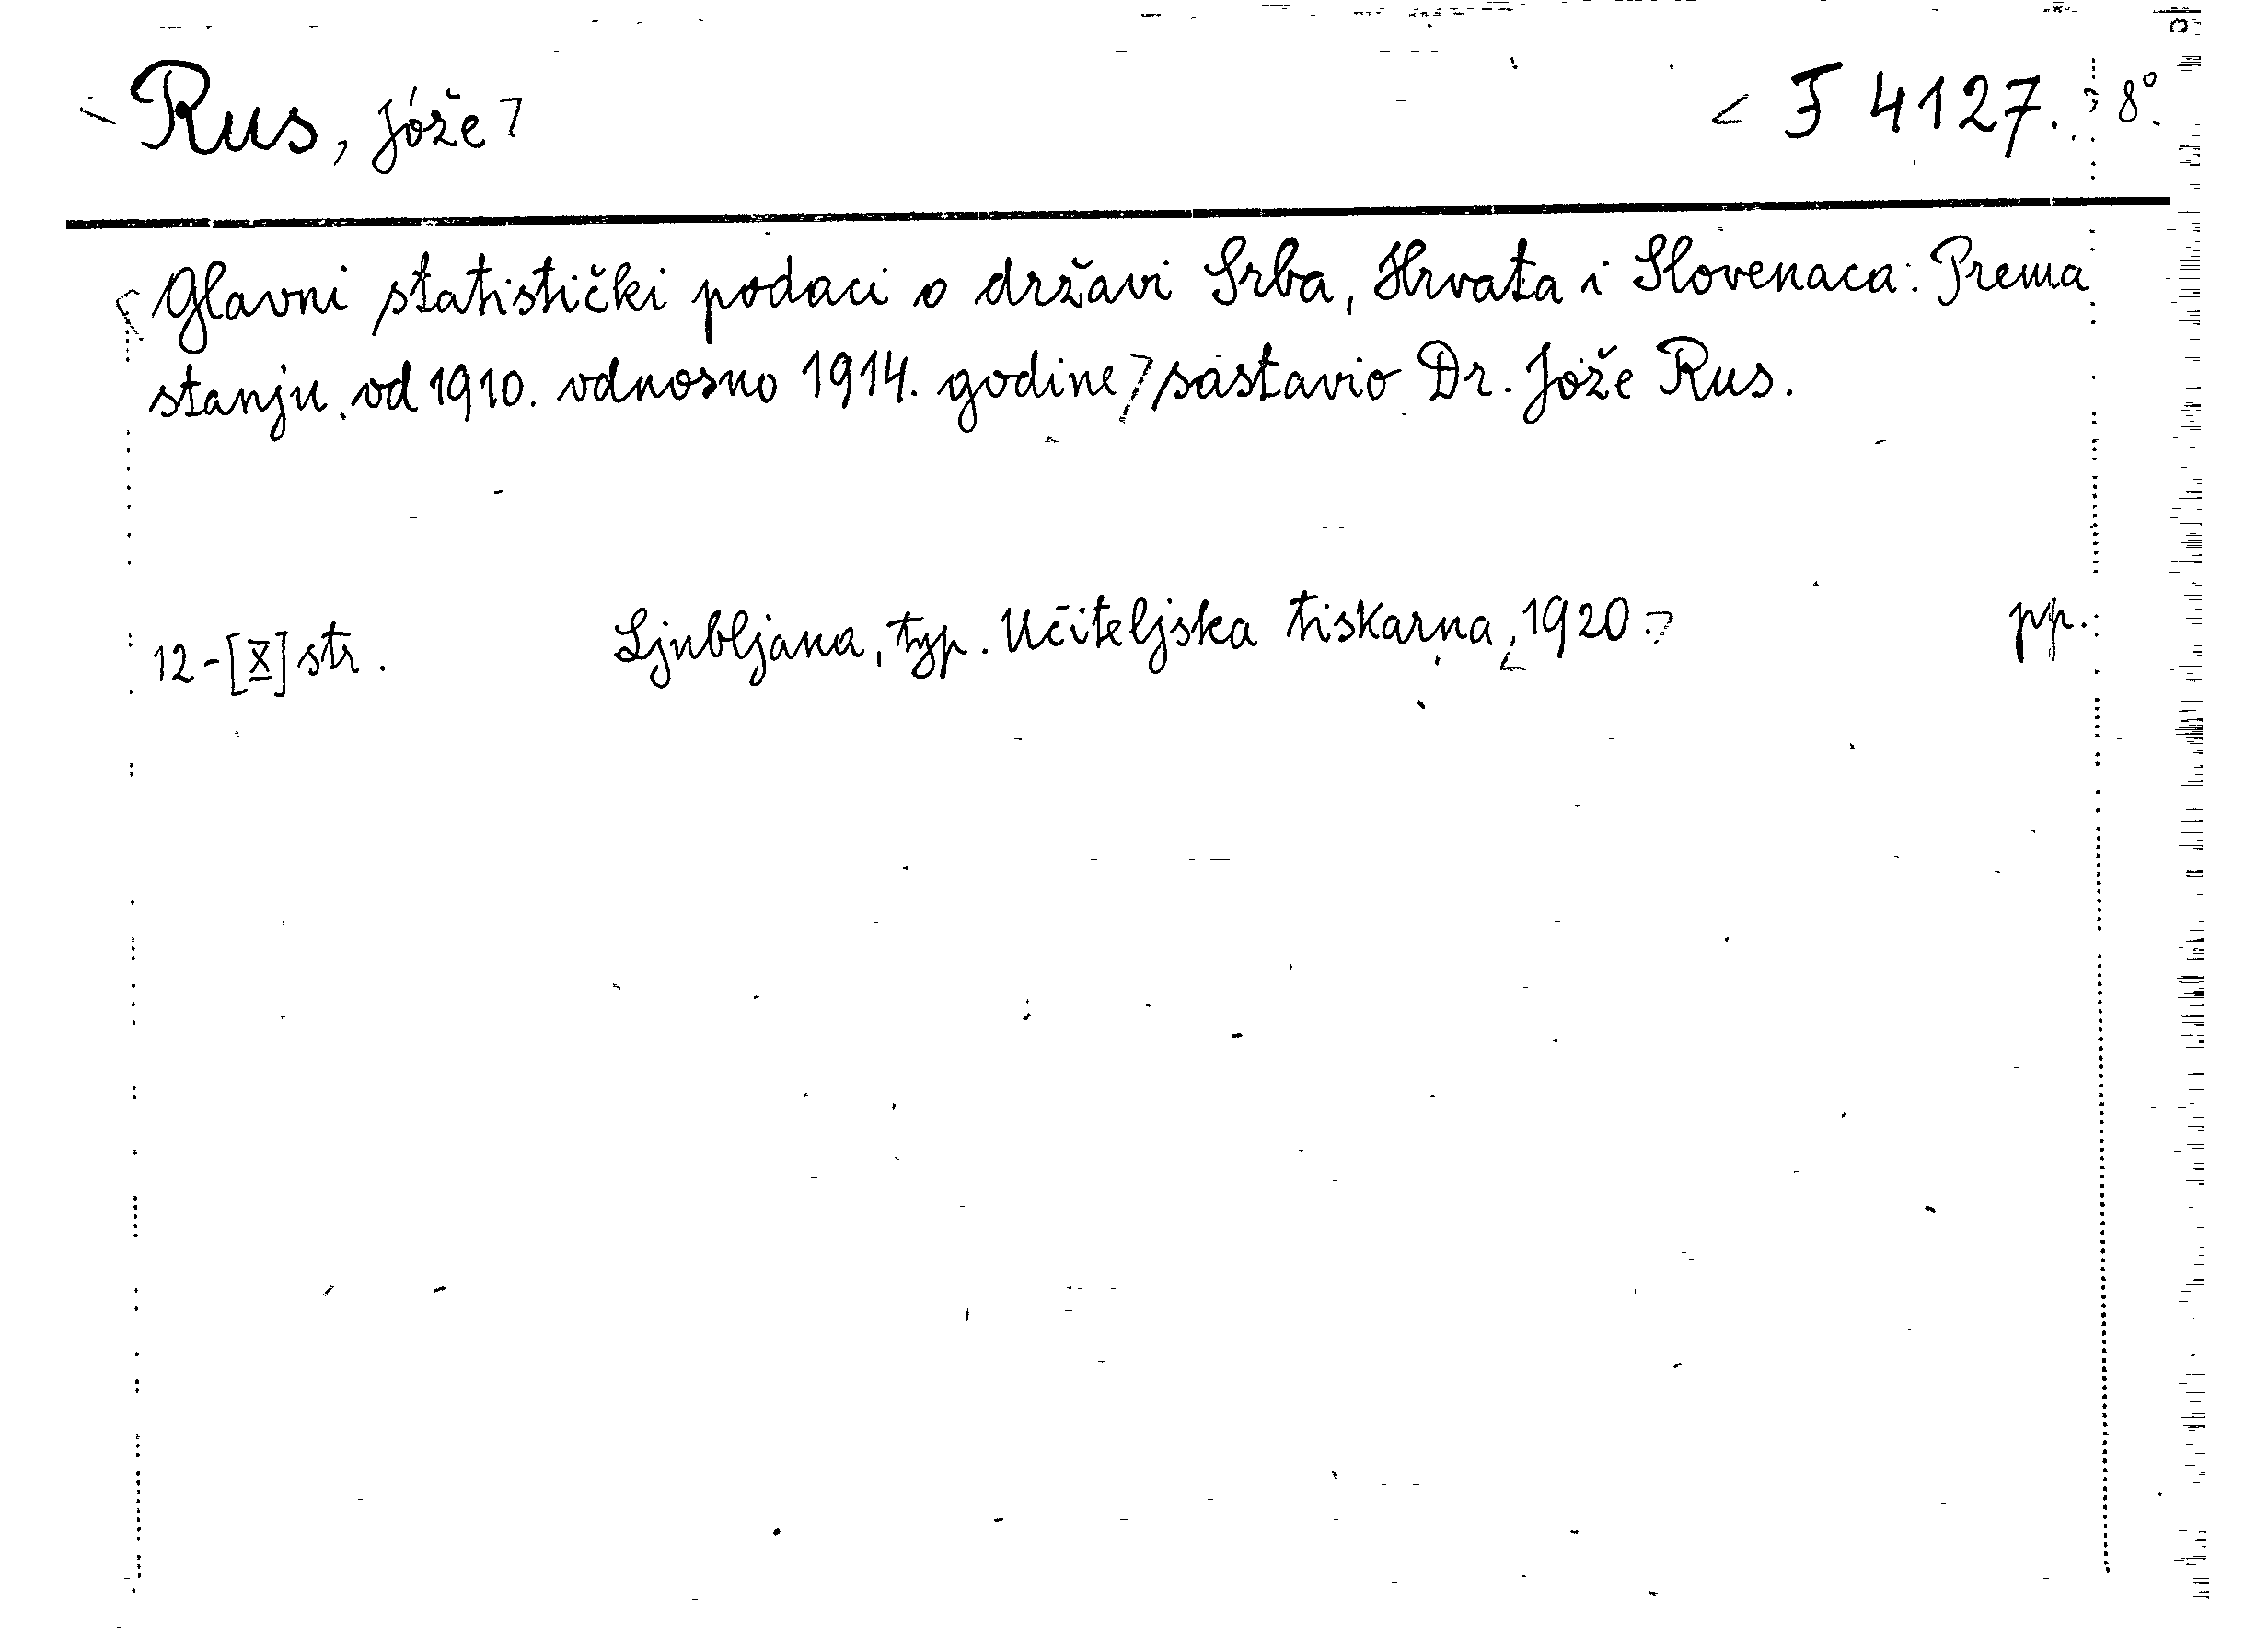 Rus, Jóže F 4127. 8°.
Glavni statistički podaci o državi Srba, Hrvata i Slovenaca: Prema
stanju od 1910. odnosno 1914. godine / sastavio Dr. Jože Rus.
12-[X] str. Ljubljana, typ. Učiteljska tiskarna, 1920. pp.